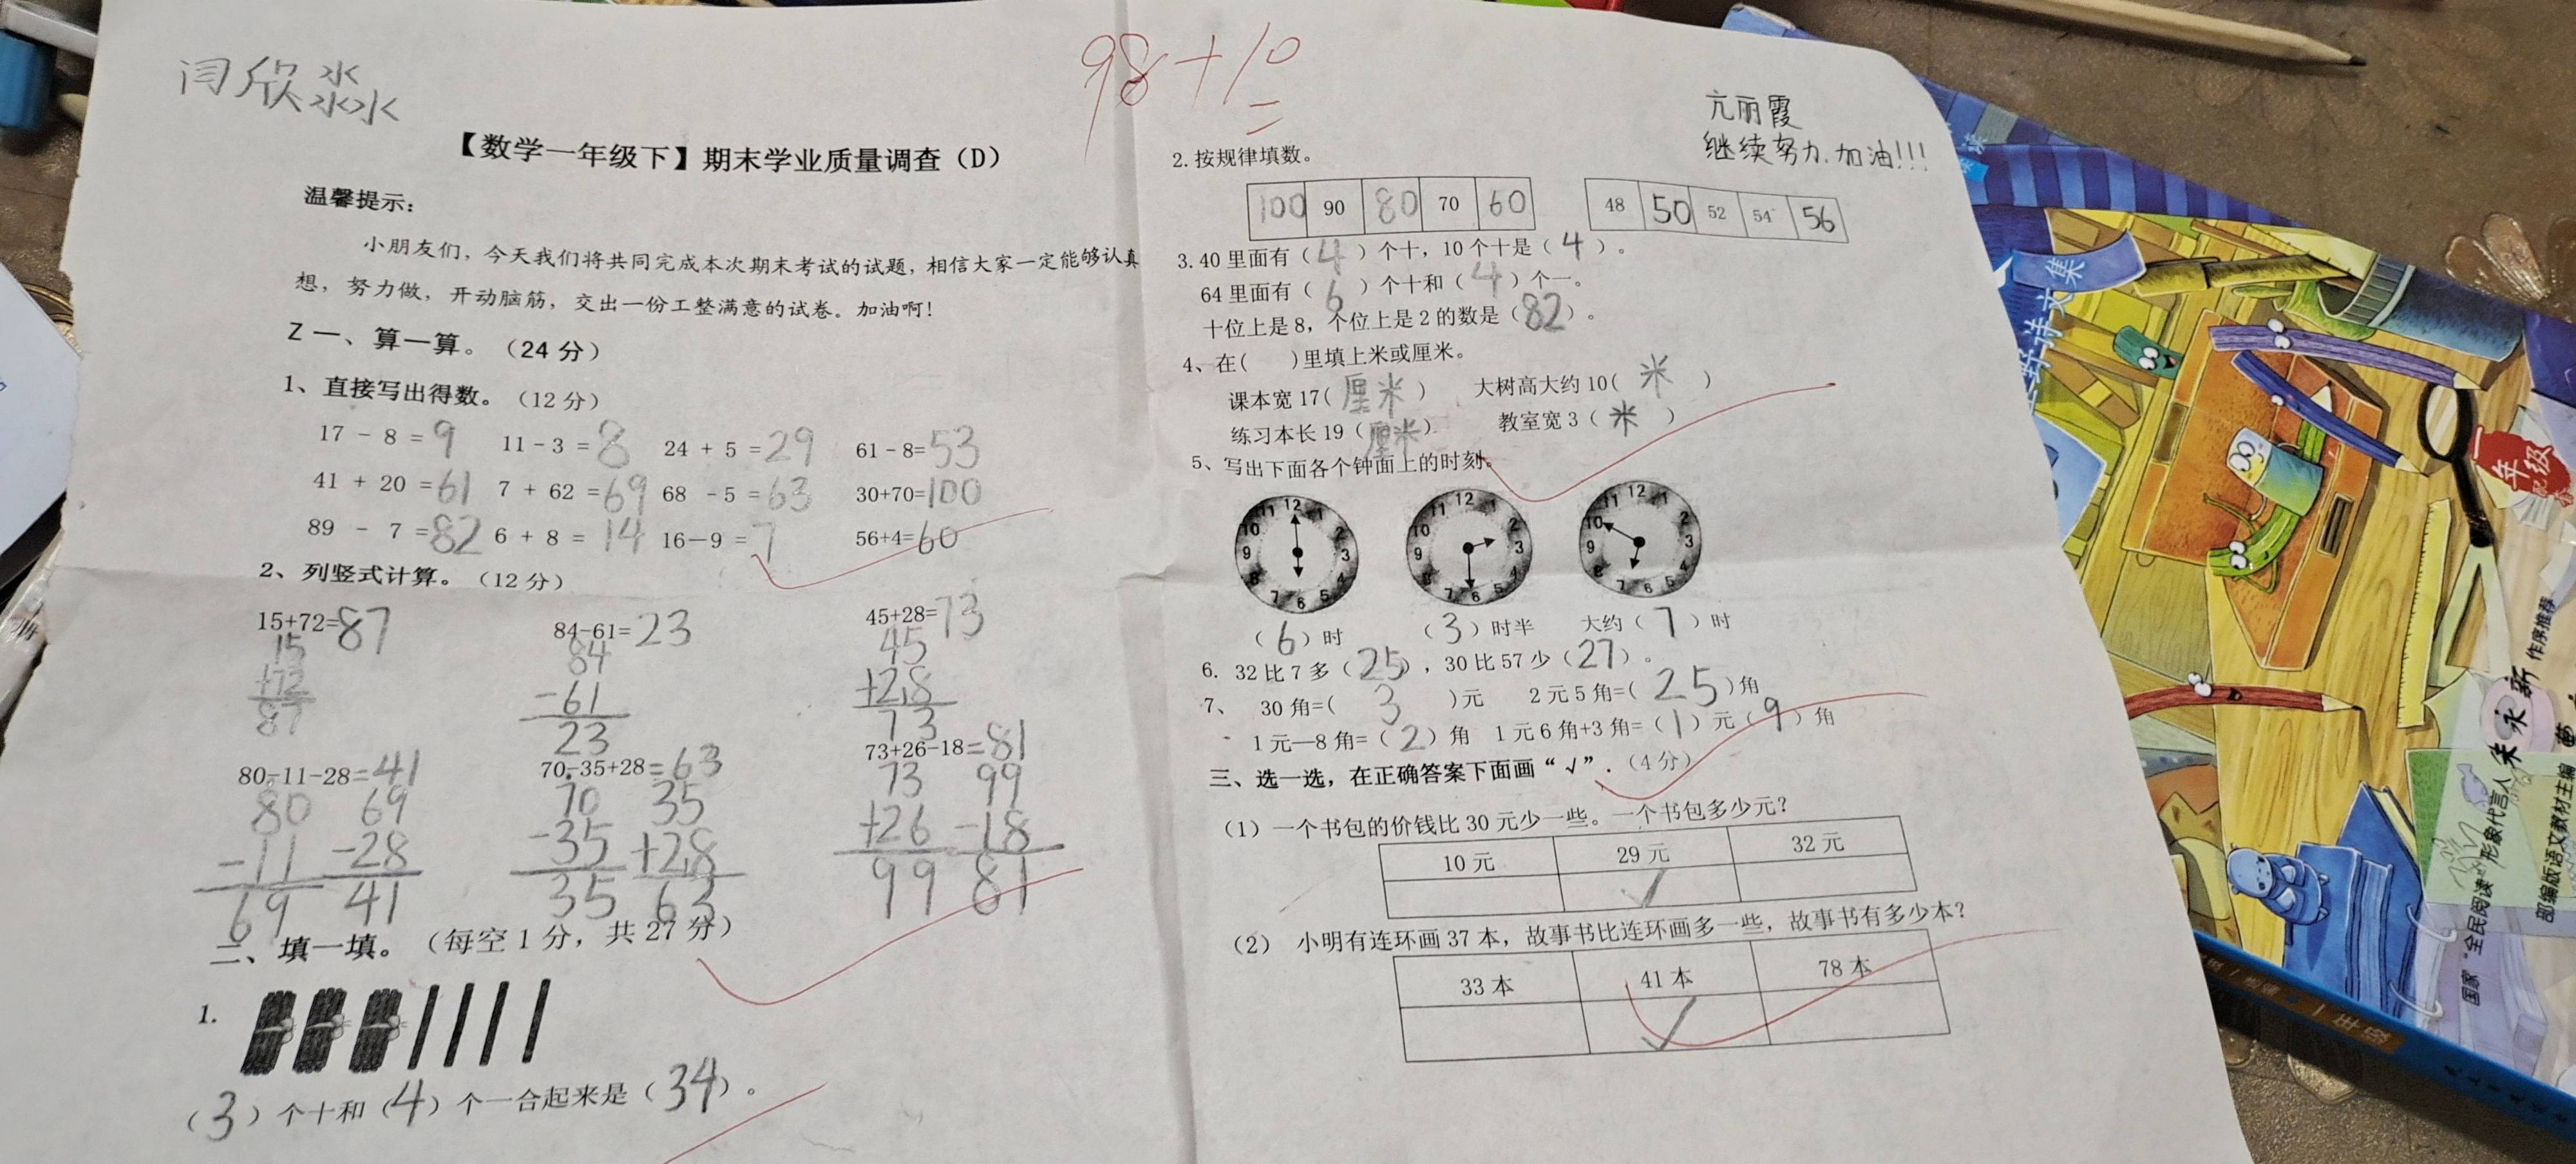 闫欣淼
98+10
【数学一年级下】期末学业质量调查（D）
温馨提示：
小朋友们，今天我们将共同完成本次期末考试的试题，相信大家一定能够认真
想，努力做，开动脑筋，交出一份工整满意的试卷。加油啊！
Z 一、算一算。（24 分）
1、直接写出得数。（12 分）
17 - 8 = 9 11 - 3 = 8 24 + 5 = 29 61 - 8= 53
41 + 20 = 61 7 + 62 = 69 68 - 5 = 63 30+70= 100
89 - 7 = 82 6 + 8 = 14 16－9 = 7 56+4= 60
2、列竖式计算。（12 分）
15+72= 87 84-61= 23 45+28= 73
15 84 45
+72 -61 +28
87 23 73
80-11-28 =41 70-35+28 =63 73+26-18 =81
80 69 70 35 73 99
-11 -28 -35 +28 +26 -18
69 41 35 63 99 81
二、填一填。（每空 1 分，共 27 分）
1.
（3）个十和（4）个一合起来是（34）。
亢丽霞
继续努力,加油!!!
2. 按规律填数。
100 90 80 70 60 48 50 52 54 56
3. 40 里面有（4）个十，10 个十是（4）。
64 里面有（6）个十和（4）个一。
十位上是 8，个位上是 2 的数是（82）。
4、在( )里填上米或厘米。
课本宽 17( 厘米 ) 大树高大约 10( 米 )
练习本长 19（厘米） 教室宽 3（米）
5、写出下面各个钟面上的时刻。
12 1 2 3 4 5 6 7 8 9 10 11
12 1 2 3 4 5 6 7 8 9 10 11
12 1 2 3 4 5 6 7 8 9 10 11
（6）时 （3）时半 大约（7）时
6. 32 比 7 多（25），30 比 57 少（27）。
7、 30 角=( 3 )元 2 元 5 角=( 25 )角
1 元—8 角=（2）角 1 元 6 角+3 角=（1）元（9）角
三、选一选，在正确答案下面画“√”.（4 分）
（1）一个书包的价钱比 30 元少一些。一个书包多少元？
10 元 29 元 32 元
√
（2） 小明有连环画 37 本，故事书比连环画多一些，故事书有多少本？
33 本 41 本 78 本
√
诗文集
一年级
朱永新 作序推荐
国家“全民阅读”形象代言人
部编版语文教材主编
一年级